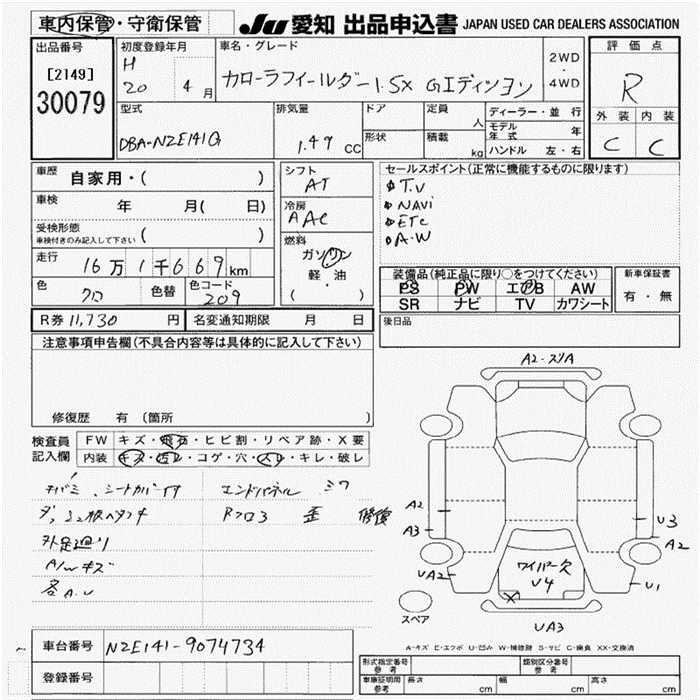 車内保管・守衛保管
JU 愛知 出品申込書 JAPAN USED CAR DEALERS ASSOCIATION
出品番号
[2149]
30079
初度登録年月
H
20 4 月
車名・グレード
カローラフィールダー 1.5X Gエディション
2WD
・
4WD
評価点
R
外装 内装
C C
型式
DBA-NZE141G
排気量
1.49 CC
ドア
形状
定員
人
積載
kg
ディーラー・並行
モデル年式 年
ハンドル 左・右
車歴
自家用・( )
車検
年 月( 日)
受検形態
車検付きのみ記入して下さい ( )
走行
16万1千669km
色
クロ
色替
色コード
209
シフト
AT
冷房
AAC
燃料
ガソリン
軽・油
( ・ )
セールスポイント(正常に機能するものに限ります)
T.V
NAVI
ETC
A.W
装備品(純正品に限り○をつけてください)
PS PW エアB AW
SR ナビ TV カワシート
新車保証書
有・無
R券 11,730 円
名変通知期限 月 日
後日品
注意事項申告欄(不具合内容等は具体的に記入して下さい)
修復歴 有 (箇所 )
検査員
記入欄
FW キズ・飛石・ヒビ割・リペア跡・X要
内装 キズ・汚レ・コゲ・穴・スレ・キレ・破レ
シートカバー付
外足廻り
A/Wキズ
各A.U
エンドパネル
Rフロア 歪 修復
A2・スリA
A2
A3
UA2
U3
A2
U1
ワイパー欠
U4
X
UA3
スペア
A-キズ E-エクボ U-凹み W-補修跡 S-サビ C-腐食 XX-交換済
車台番号 NZE141-9074734
登録番号
形式指定番号
参考
類別区分番号
参考
車庫証明用
参考
長さ cm
幅 cm
高さ cm